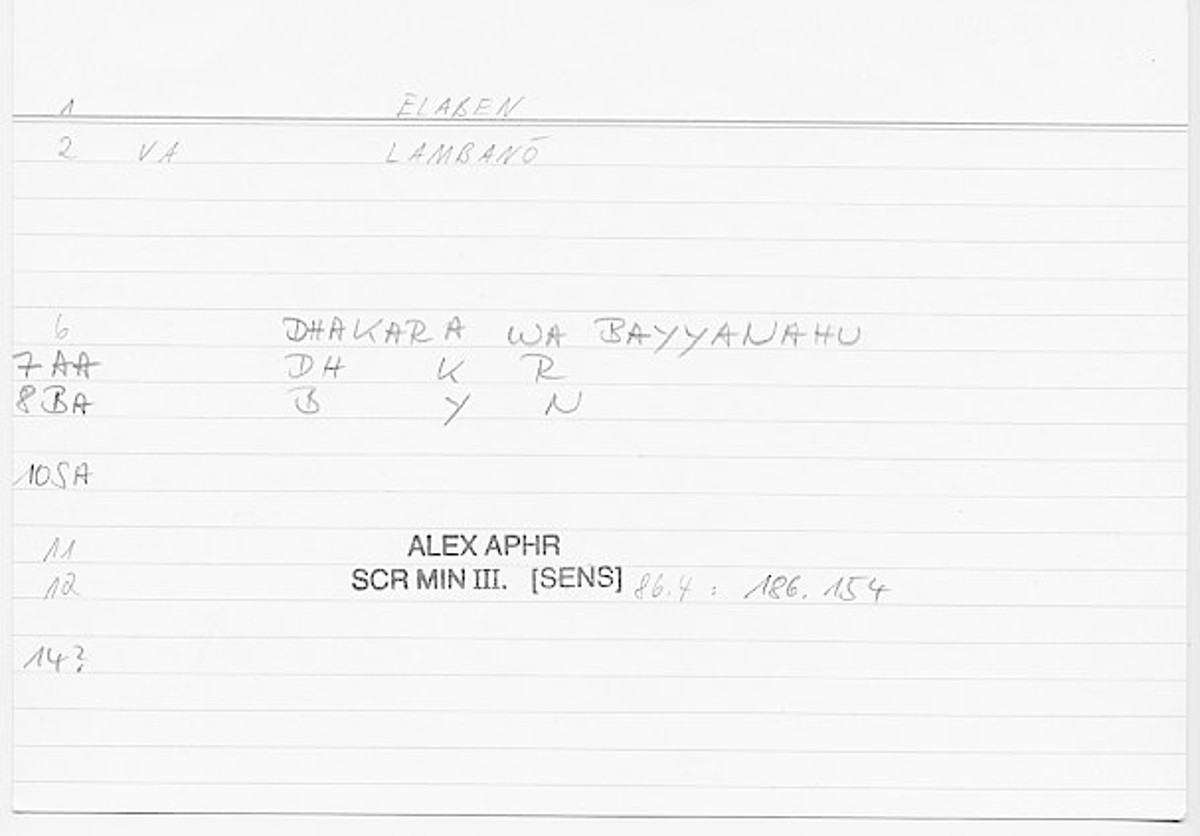 1 ĒLABEN
2 VA LAMBANŌ
6 DHAKARA WA BAYYANAHU
7 AA DH K R
8 BA B Y N
10 SA
11 ALEX APHR
12 SCR MIN III. [SENS] 86.4 : 186.154
14?